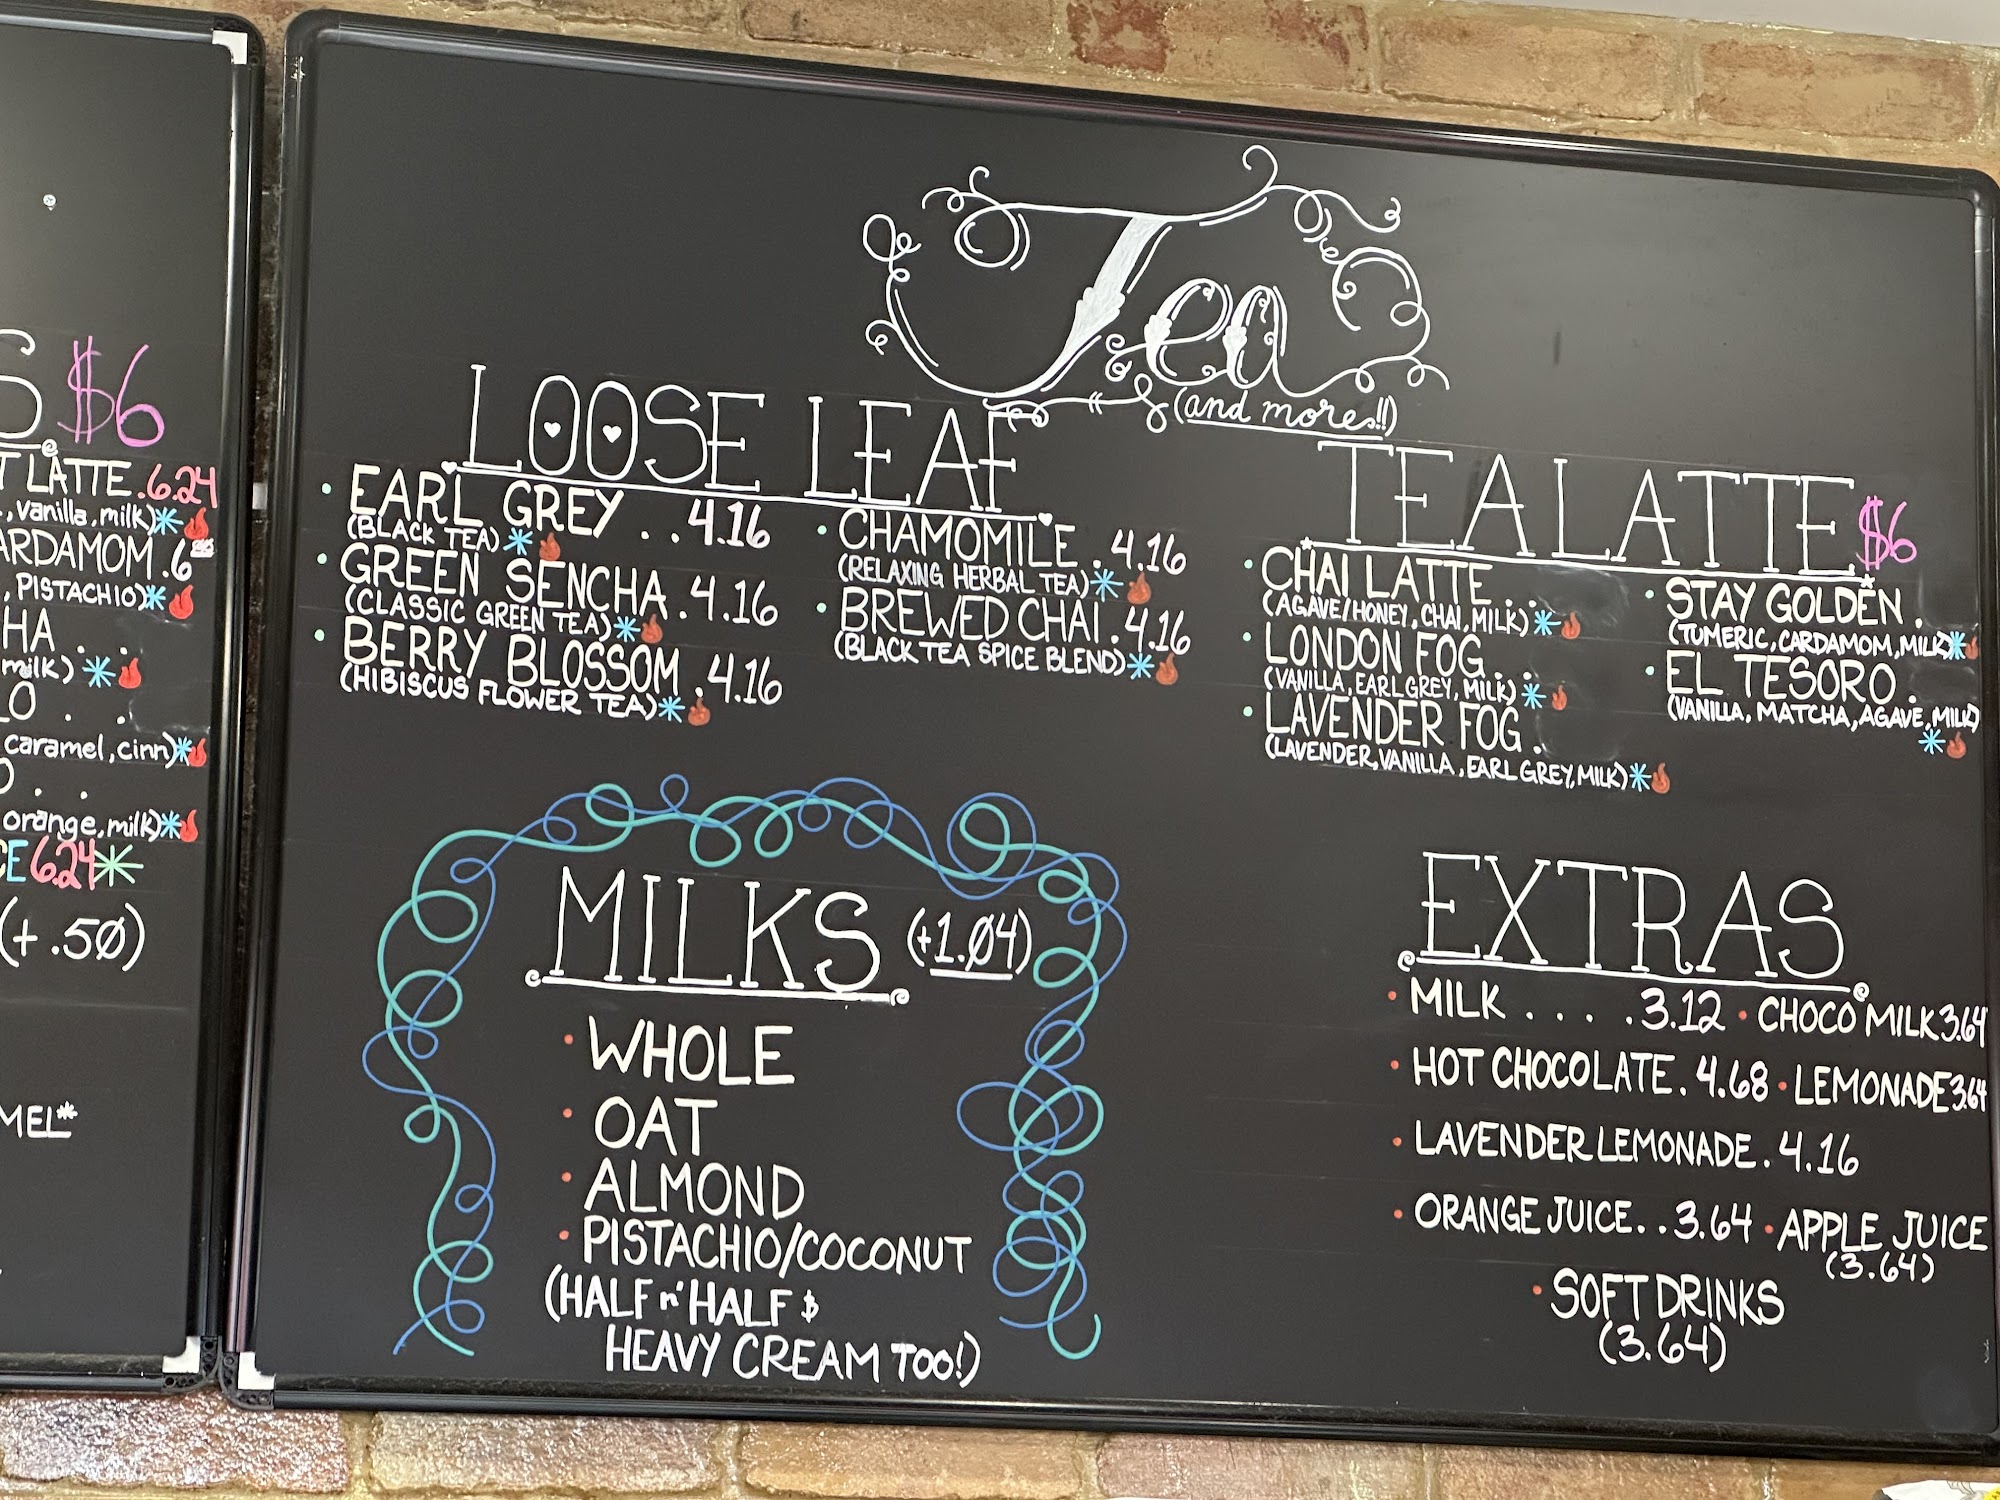 $6
LATTE.6.24
, vanilla, milk)
CARDAMOM.6
, PISTACHIO)
milk)
caramel, cinn)
orange, milk)
6.24
(+.50)
Tea
(and more!!)
LOOSE LEAF
• EARL GREY . . 4.16
(BLACK TEA)
• GREEN SENCHA . 4.16
(CLASSIC GREEN TEA)
• BERRY BLOSSOM . 4.16
(HIBISCUS FLOWER TEA)
• CHAMOMILE . 4.16
(RELAXING HERBAL TEA)
• BREWED CHAI . 4.16
(BLACK TEA SPICE BLEND)
TEA LATTE $6
• CHAI LATTE . .
(AGAVE/HONEY, CHAI, MILK)
• LONDON FOG . .
(VANILLA, EARL GREY, MILK)
• LAVENDER FOG .
(LAVENDER, VANILLA, EARL GREY, MILK)
• STAY GOLDEN .
(TUMERIC, CARDAMOM, MILK)
• EL TESORO .
(VANILLA, MATCHA, AGAVE, MILK)
MILKS (+1.04)
• WHOLE
• OAT
• ALMOND
• PISTACHIO/COCONUT
(HALF n' HALF &
HEAVY CREAM TOO!)
EXTRAS
• MILK . . . . . 3.12 • CHOCO MILK 3.64
• HOT CHOCOLATE . 4.68 • LEMONADE 3.64
• LAVENDER LEMONADE . 4.16
• ORANGE JUICE . . 3.64 • APPLE JUICE
(3.64)
• SOFT DRINKS
(3.64)